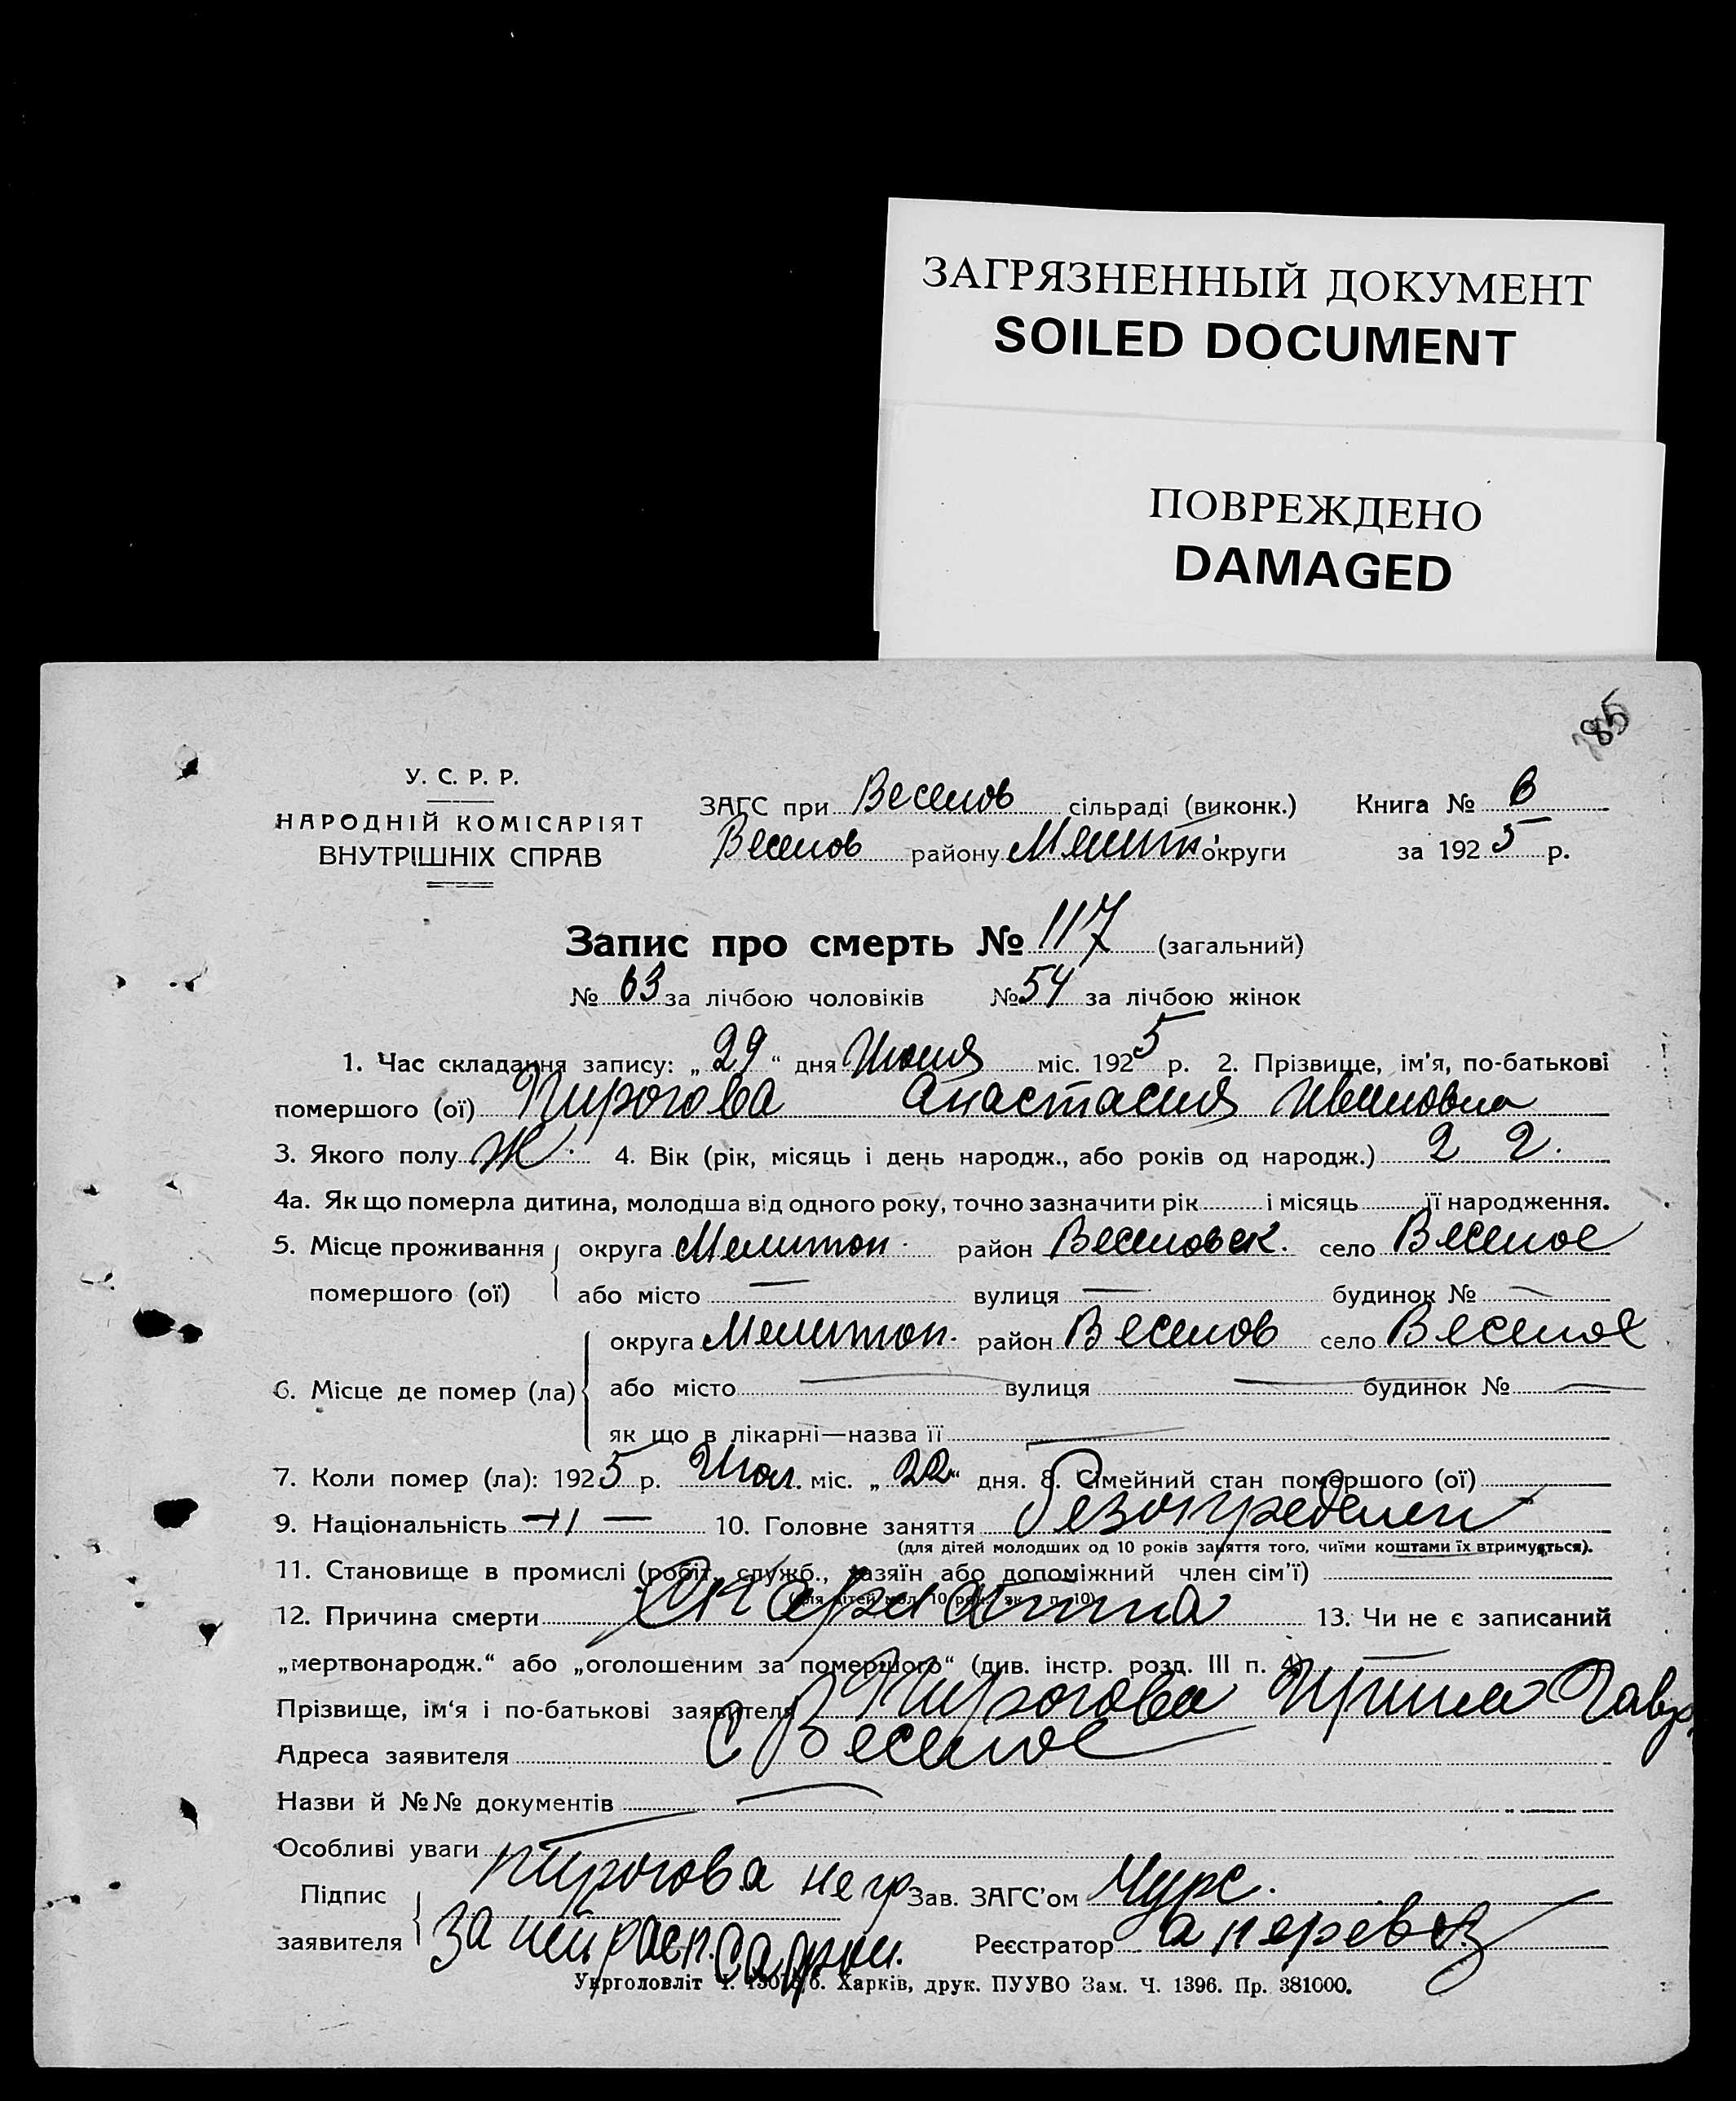 ЗАГРЯЗНЕННЫЙ ДОКУМЕНТ
SOILED DOCUMENT
ПОВРЕЖДЕНО
DAMAGED
85
У. С. Р. Р.
НАРОДНІЙ КОМІСАРІЯТ
ВНУТРІШНІХ СПРАВ
ЗАГС при Веселов сільраді (виконк.) Книга № 6
Веселов району Мелит. округи за 1925 р.
Запис про смерть № 117 (загальний)
№ 63 за лічбою чоловіків № 54 за лічбою жінок
1. Час складання запису: „29“ дня Июня міс. 1925 р. 2. Прізвище, ім'я, по-батькові
помершого (ої) Пирогова Анастасия Ивановна
3. Якого полу Ж. 4. Вік (рік, місяць і день народж., або років од народж.) 2 г.
4а. Як що померла дитина, молодша від одного року, точно зазначити рік і місяць її народження.
5. Місце проживання округа Мелитоп. район Веселовск. село Веселое
помершого (ої) або місто — вулиця — будинок № —
округа Мелитоп. район Веселов село Веселое
6. Місце де помер (ла) або місто — вулиця — будинок № —
як що в лікарні—назва її —
7. Коли помер (ла): 1925 р. міс. „22“ дня. 8. Сімейний стан помершого (ої)
9. Національність —〃— 10. Головне заняття
(для дітей молодших од 10 років заняття того, чиїми коштами їх втримується).
11. Становище в промислі (робіт., служб., хазяїн або допоміжний член сім'ї)
(для дітей мол. 10 рок. як п. 10)
12. Причина смерти Скарлатина 13. Чи не є записаний
„мертвонародж.“ або „оголошеним за помершого“ (див. інстр. розд. III п. 4) —
Прізвище, ім'я і по-батькові заявителя Пирогова Ирина Гавр.
Адреса заявителя с Веселое
Назви й №№ документів —
Особливі уваги —
Підпис Пирогова негр Зав. ЗАГС'ом Чурс.
заявителя За ней расп. Реєстратор
Укрголовліт Ч. Харків, друк. ПУУВО Зам. Ч. 1396. Пр. 381000.